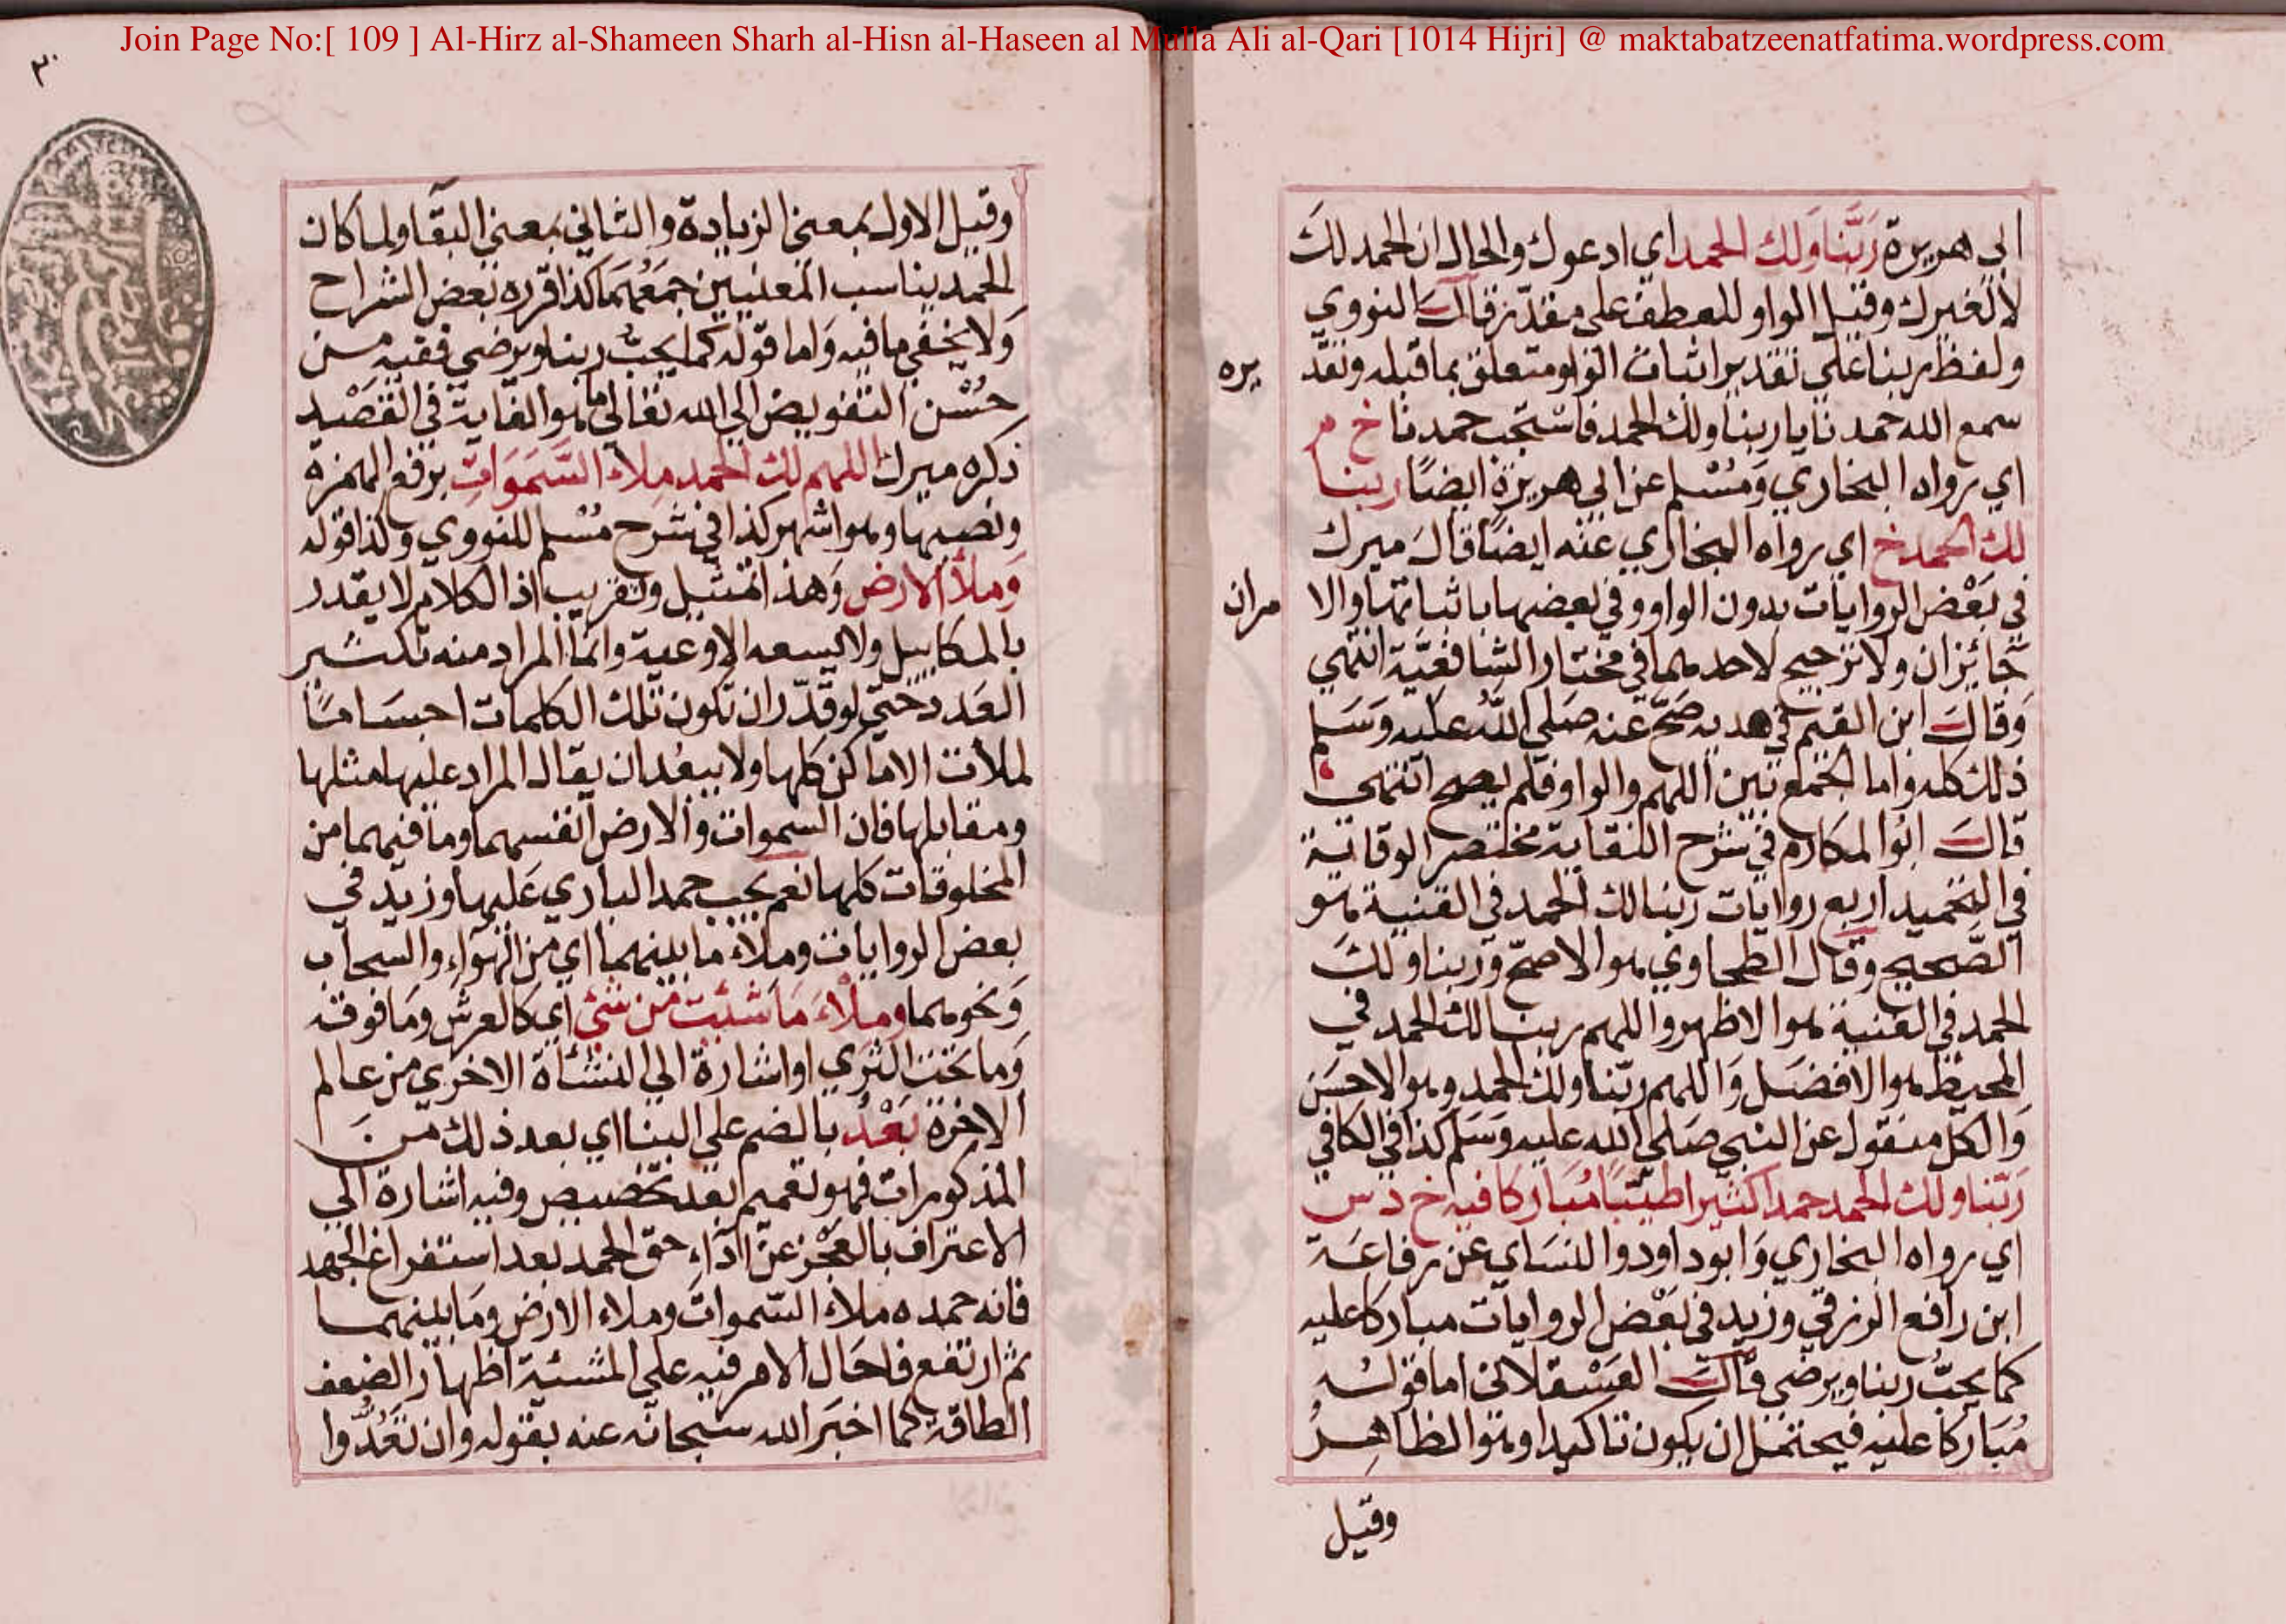 Join Page No:[ 109 ] Al-Hirz al-Shameen Sharh al-Hisn al-Haseen al Mulla Ali al-Qari [1014 Hijri] @ maktabatzeenatfatima.wordpress.com
ابي هريرة رَبَّنا وَلك الحمد اي ادعوك والحال ان الحمد لكَ
لا لغيرك وقيل الواو للعطف على مقدّر قالَ النووي
ولفظ ربنا على تقدير اثبات الواو متعلق بما قبله وتقد
يره
سمع الله حمدنا يا ربنا ولك الحمد فاستجب حمدنا خ م
اي رواه البخاري وَمُسْلم عن ابي هريرة ايضًا ربنا
لك الحمد خ اي رواه البخاري عنه ايضًا قالَ ميرك
في بَعْض الروايات بدون الواو وفي بعضها باثباتها والا
مران
جَائزان ولا ترجيح لاحدهما في مختار الشافعيَّة انتهي
وَقالَ ابن القيم في هديه صَحَّ عنه صَلي اللّه عليه وَسَلم
ذلك كله واما الجمع بين اللهم والواو فلم يصح انتهى
قالَ ابُو المكارم في شرح النقاية مختصر الوقاية
في التحميد اربع روايات ربنا لك الحمد في القنية هو
الصَّحيح وقال الطحاوي هو الاصحّ وَربنا ولكَ
الحمد في القنية هو الاظهر واللهم ربنا لك الحمد في
المحيط هو الافضل وَاللهم ربّنا ولك الحمد وهو الاحسَن
وَالكل منقول عن النبي صَلى الله عليه وَسَلم كذا في الكافي
رَبّنا ولك الحمد حمدا كثيرا طيّبًا مُبَاركا فيه خ د س
اي رواه البخاري وَابوداود والنسَاي عن رفاعَة
ابن رافع الزرقي وزيد في بَعْض الروايات مباركًا عليه
كما يحبُّ ربنا ويرضى قالَ العَسْقلاني اما قولُه
مُبَاركًا عليه فيحتمل ان يكون تاكيدا وهو الظاهِرُ
وقيل
٣٠
وقيل الاول بمعنى الزيادة والثاني بمعنى البقَا ولما كان
الحمد يناسب المعنيين جمَعَهُمَا كذا قرره بَعض الشراح
وَلا يخفي ما فيه وَاما قوله كما يحبُّ ربنا ويرضى ففيه من
حُسْن التفويض الي الله تعالي ما هو الغاية في القَصْد
ذكره ميرك اللهم لك الحمد مِلاء السَّمَوَاتِ برفع الهمزة
ونصبها وهو اشهر كذا في شرح مُسْلم للنووي وكذا قوله
وَملأ الارض وَهذا تمثيل وتقريب اذ الكلام لا يقدر
بالمكاييل ولا يسعه الاوعية وانمّا المراد منه تكثير
العَدد حتّي لو قدّر ان تكون تلك الكلمات اجسَامًا
لملأت الاماكن كلها ولا يبعُد ان يقال المراد عليها مثلها
ومقابلها فان السموات والارض انفسهما وما فيهما من
المخلوقات كلها نعم يجب حمد الباري عَليها وزيد في
بعض الروايات وملاء ما بينهما اي من الهَوَاءِ والسحاب
وَنحوهما وملاءَ مَا شئت من شئ اي كالعرش ومَا فوقه
وَما تحت الثري او اشارة الي النشأة الاخري من عالم
الاخرة بَعْدُ بالضم علي البنا اي بعد ذلك من
المذكورات فهو تعميم بعد تخصيص وفيه اشارة الي
الاعتراف بالعَجْز عنْ ادآءِ حق الحمد بعد استفراغ الجهد
فانه حمده ملاءَ السّموات وملاء الارض ومَا بينهما
ثم ارتفع فاحَال الامر فيه علي المشيّة اظهارا لضعف
الطاقة كما اخبَر الله سبحانه عنه بقوله وان تعُدُّوا